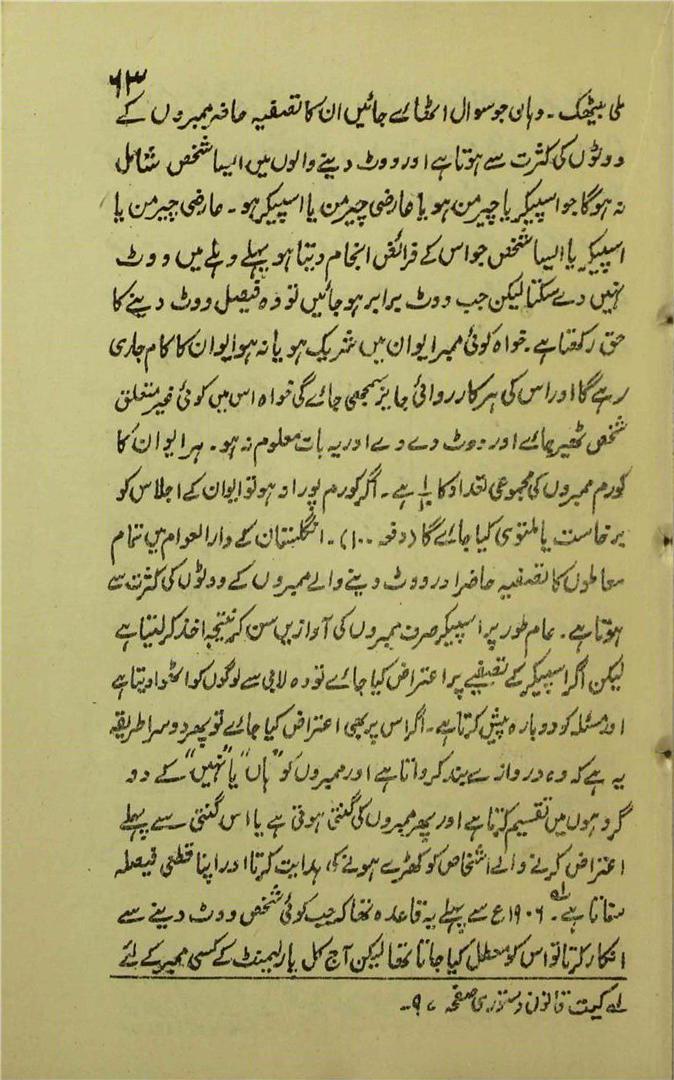 ۶۳
ملی بیٹھک ۔ وہان جو سوال اٹھائے جائیں ان کا تصفیہ حاضر ممبروں کے
ووٹوں کی کثرت سے ہوتا ہے اور ووٹ دینے والوں میں ایسا شخص شامل
نہ ہوگا جو اسپیکر یا چیرمن ہو یا عارضی چیرمن یا اسپیکر ہو ۔ عارضی چیرمن یا
اسپیکر یا ایسا شخص جو اس کے فرائض انجام دیتا ہو پہلے وہلے میں ووٹ
نہیں دے سکتا لیکن جب ووٹ برابر ہو جائیں تو وہ فیصل ووٹ دینے کا
حق رکھتا ہے ۔ خواہ کوئی ممبر ایوان میں شریک ہو یا نہ ہو ایوان کا کام جاری
رہے گا اور اس کی ہر کارروائی جایز سمجھی جائے گی خواہ اس میں کوئی غیر متعلق
شخص ٹھیر جائے اور ووٹ دے دے اور یہ بات معلوم نہ ہو ۔ ہر ایوان کا
کورم ممبروں کی مجموعی تعداد کا ہے ۔ اگر کورم پورا نہ ہو تو ایوان کے اجلاس کو
برخاست یا ملتوی کیا جائے گا (دفعہ ۱۰۰) ۔ انگلستان کے دارالعوام میں تمام
معاملوں کا تصفیہ حاضر اور ووٹ دینے والے ممبروں کے ووٹوں کی کثرت سے
ہوتا ہے ۔ عام طور پر اسپیکر صرف ممبروں کی آوازیں سن کر نتیجہ اخذ کر لیتا ہے
لیکن اگر اسپیکر کے تصفیے پر اعتراض کیا جائے تو وہ لابی سے لوگوں کو اٹھوا دیتا ہے
اور مسئلہ کو دوبارہ پیش کرتا ہے ۔ اگر اس پر بھی اعتراض کیا جائے تو پھر دوسرا طریقہ
یہ ہے کہ وہ دروازے بند کرواتا ہے اور ممبروں کو "ہاں" یا "نہیں" کے دو
گروہوں میں تقسیم کرتا ہے اور پھر ممبروں کی گنتی ہوتی ہے یا اس گنتی سے پہلے
اعتراض کرنے والے اشخاص کو کھڑے ہونے کی ہدایت کرتا اور اپنا قطعی فیصلہ
سناتا ہے لہ ۔ ۱۹۰۶ع سے پہلے یہ قاعدہ تھا کہ جب کوئی شخص ووٹ دینے سے
انکار کرتا تو اس کو معطل کیا جاتا تھا لیکن آج کل پارلیمنٹ کے کسی ممبر کے لئے
لہ کیت قانون دستوری صفحہ ۹۷ ۔